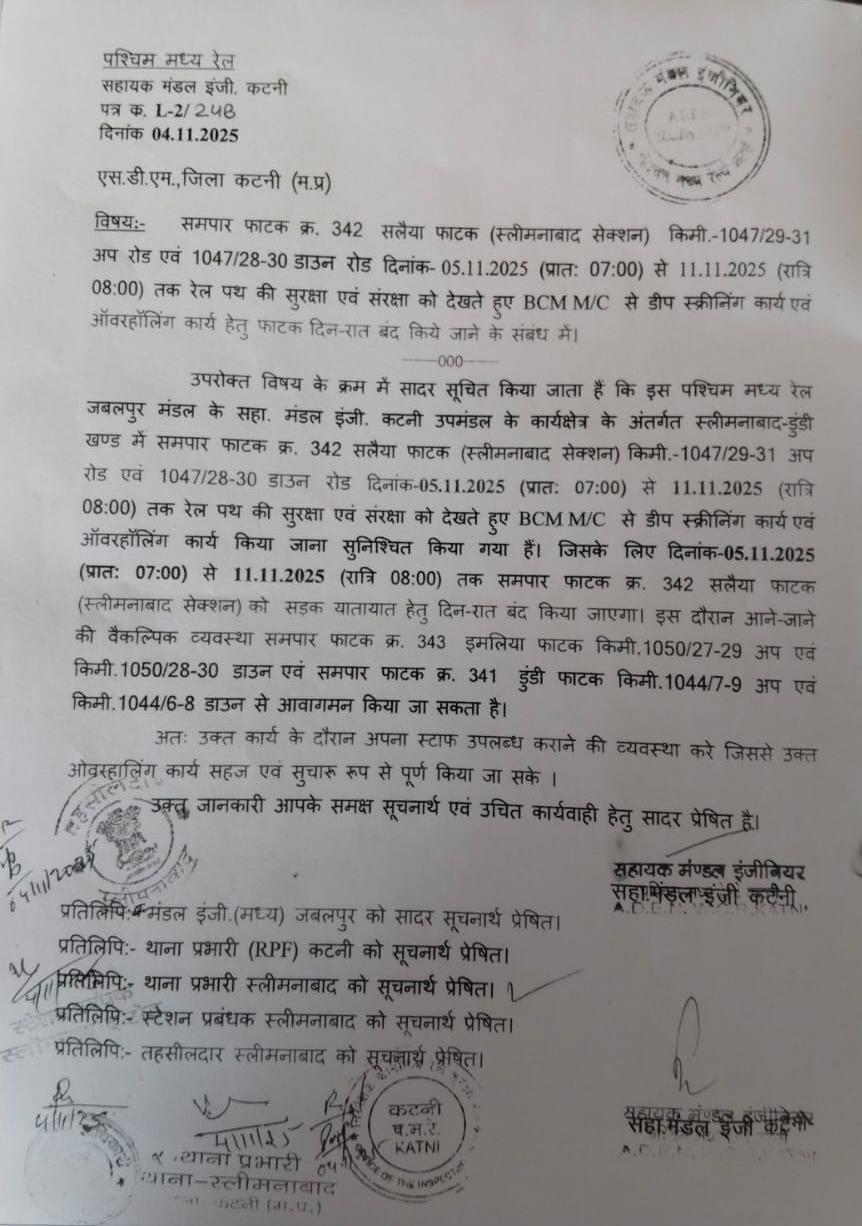 पश्चिम मध्य रेल
सहायक मंडल इंजी. कटनी
पत्र क. L-2/24B
दिनांक 04.11.2025
एस.डी.एम.,जिला कटनी (म.प्र)
विषय:- समपार फाटक क्र. 342 सलैया फाटक (स्लीमनाबाद सेक्शन) किमी.-1047/29-31
अप रोड एवं 1047/28-30 डाउन रोड दिनांक- 05.11.2025 (प्रातः 07:00) से 11.11.2025 (रात्रि
08:00) तक रेल पथ की सुरक्षा एवं संरक्षा को देखते हुए BCM M/C से डीप स्क्रीनिंग कार्य एवं
ऑवरहॉलिंग कार्य हेतु फाटक दिन-रात बंद किये जाने के संबंध में।
-----000-----
उपरोक्त विषय के क्रम में सादर सूचित किया जाता हैं कि इस पश्चिम मध्य रेल
जबलपुर मंडल के सहा. मंडल इंजी. कटनी उपमंडल के कार्यक्षेत्र के अंतर्गत स्लीमनाबाद-डुंडी
खण्ड में समपार फाटक क्र. 342 सलैया फाटक (स्लीमनाबाद सेक्शन) किमी.-1047/29-31 अप
रोड एवं 1047/28-30 डाउन रोड दिनांक-05.11.2025 (प्रातः 07:00) से 11.11.2025 (रात्रि
08:00) तक रेल पथ की सुरक्षा एवं संरक्षा को देखते हुए BCM M/C से डीप स्क्रीनिंग कार्य एवं
ऑवरहॉलिंग कार्य किया जाना सुनिश्चित किया गया हैं। जिसके लिए दिनांक-05.11.2025
(प्रातः 07:00) से 11.11.2025 (रात्रि 08:00) तक समपार फाटक क्र. 342 सलैया फाटक
(स्लीमनाबाद सेक्शन) को सड़क यातायात हेतु दिन-रात बंद किया जाएगा। इस दौरान आने-जाने
की वैकल्पिक व्यवस्था समपार फाटक क्र. 343 इमलिया फाटक किमी.1050/27-29 अप एवं
किमी.1050/28-30 डाउन एवं समपार फाटक क्र. 341 डुंडी फाटक किमी.1044/7-9 अप एवं
किमी.1044/6-8 डाउन से आवागमन किया जा सकता है।
अतः उक्त कार्य के दौरान अपना स्टाफ उपलब्ध कराने की व्यवस्था करे जिससे उक्त
ओवरहालिंग कार्य सहज एवं सुचारू रूप से पूर्ण किया जा सके ।
उक्त जानकारी आपके समक्ष सूचनार्थ एवं उचित कार्यवाही हेतु सादर प्रेषित है।
सहायक मंण्डल इंजीनियर
सहा.मंडल इंजी कटनी
प्रतिलिपि:- मंडल इंजी.(मध्य) जबलपुर को सादर सूचनार्थ प्रेषित।
प्रतिलिपि:- थाना प्रभारी (RPF) कटनी को सूचनार्थ प्रेषित।
प्रतिलिपि:- थाना प्रभारी स्लीमनाबाद को सूचनार्थ प्रेषित।
प्रतिलिपि:- स्टेशन प्रबंधक स्लीमनाबाद को सूचनार्थ प्रेषित।
प्रतिलिपि:- तहसीलदार स्लीमनाबाद को सूचनार्थ प्रेषित।
कटनी
प.म.रे
KATNI
OFFICE OF THE INSPECTOR
4/11/25
थाना प्रभारी
थाना-स्लीमनाबाद
कटनी (म.प्र.)
सहायक मंण्डल इंजीनियर
सहा.मंडल इंजी कटनी